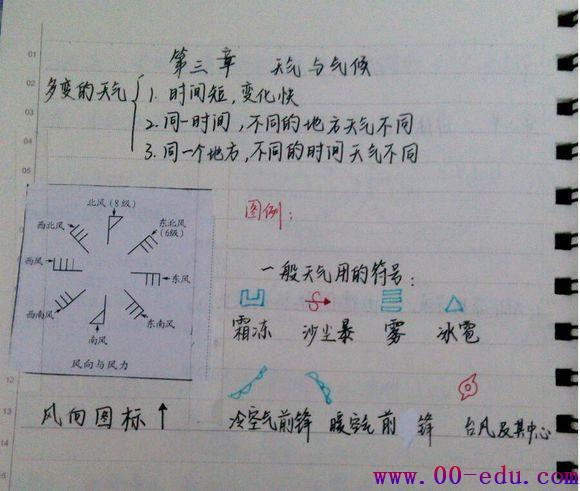 第三章 天气与气候
多变的天气
1. 时间短,变化快
2. 同一时间,不同的地方天气不同
3. 同一个地方,不同的时间天气不同
北风(8级)
西北风
东北风
(6级)
西风
东风
西南风
东南风
南风
风向与风力
风向图标↑
图例:
一般天气用的符号:
霜冻 沙尘暴 雾 冰雹
冷空气前锋 暖空气前锋 台风及其中心
01
02
03
04
05
12
13
14
15
www.00-edu.com